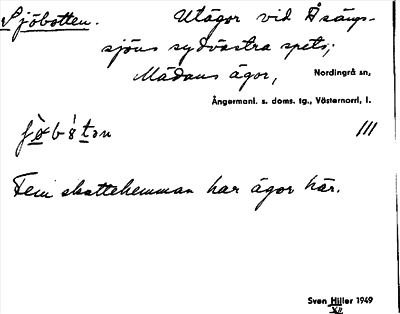 Sjöbotten. Utägor vid Åsängs-
sjöns sydvästra spets;
Mädans ägor, Nordingrå sn,
Ångermanl. s. doms. tg., Västernorrl. l.
III
Fem skattehemman har ägor här.
Sven Hiller 1949